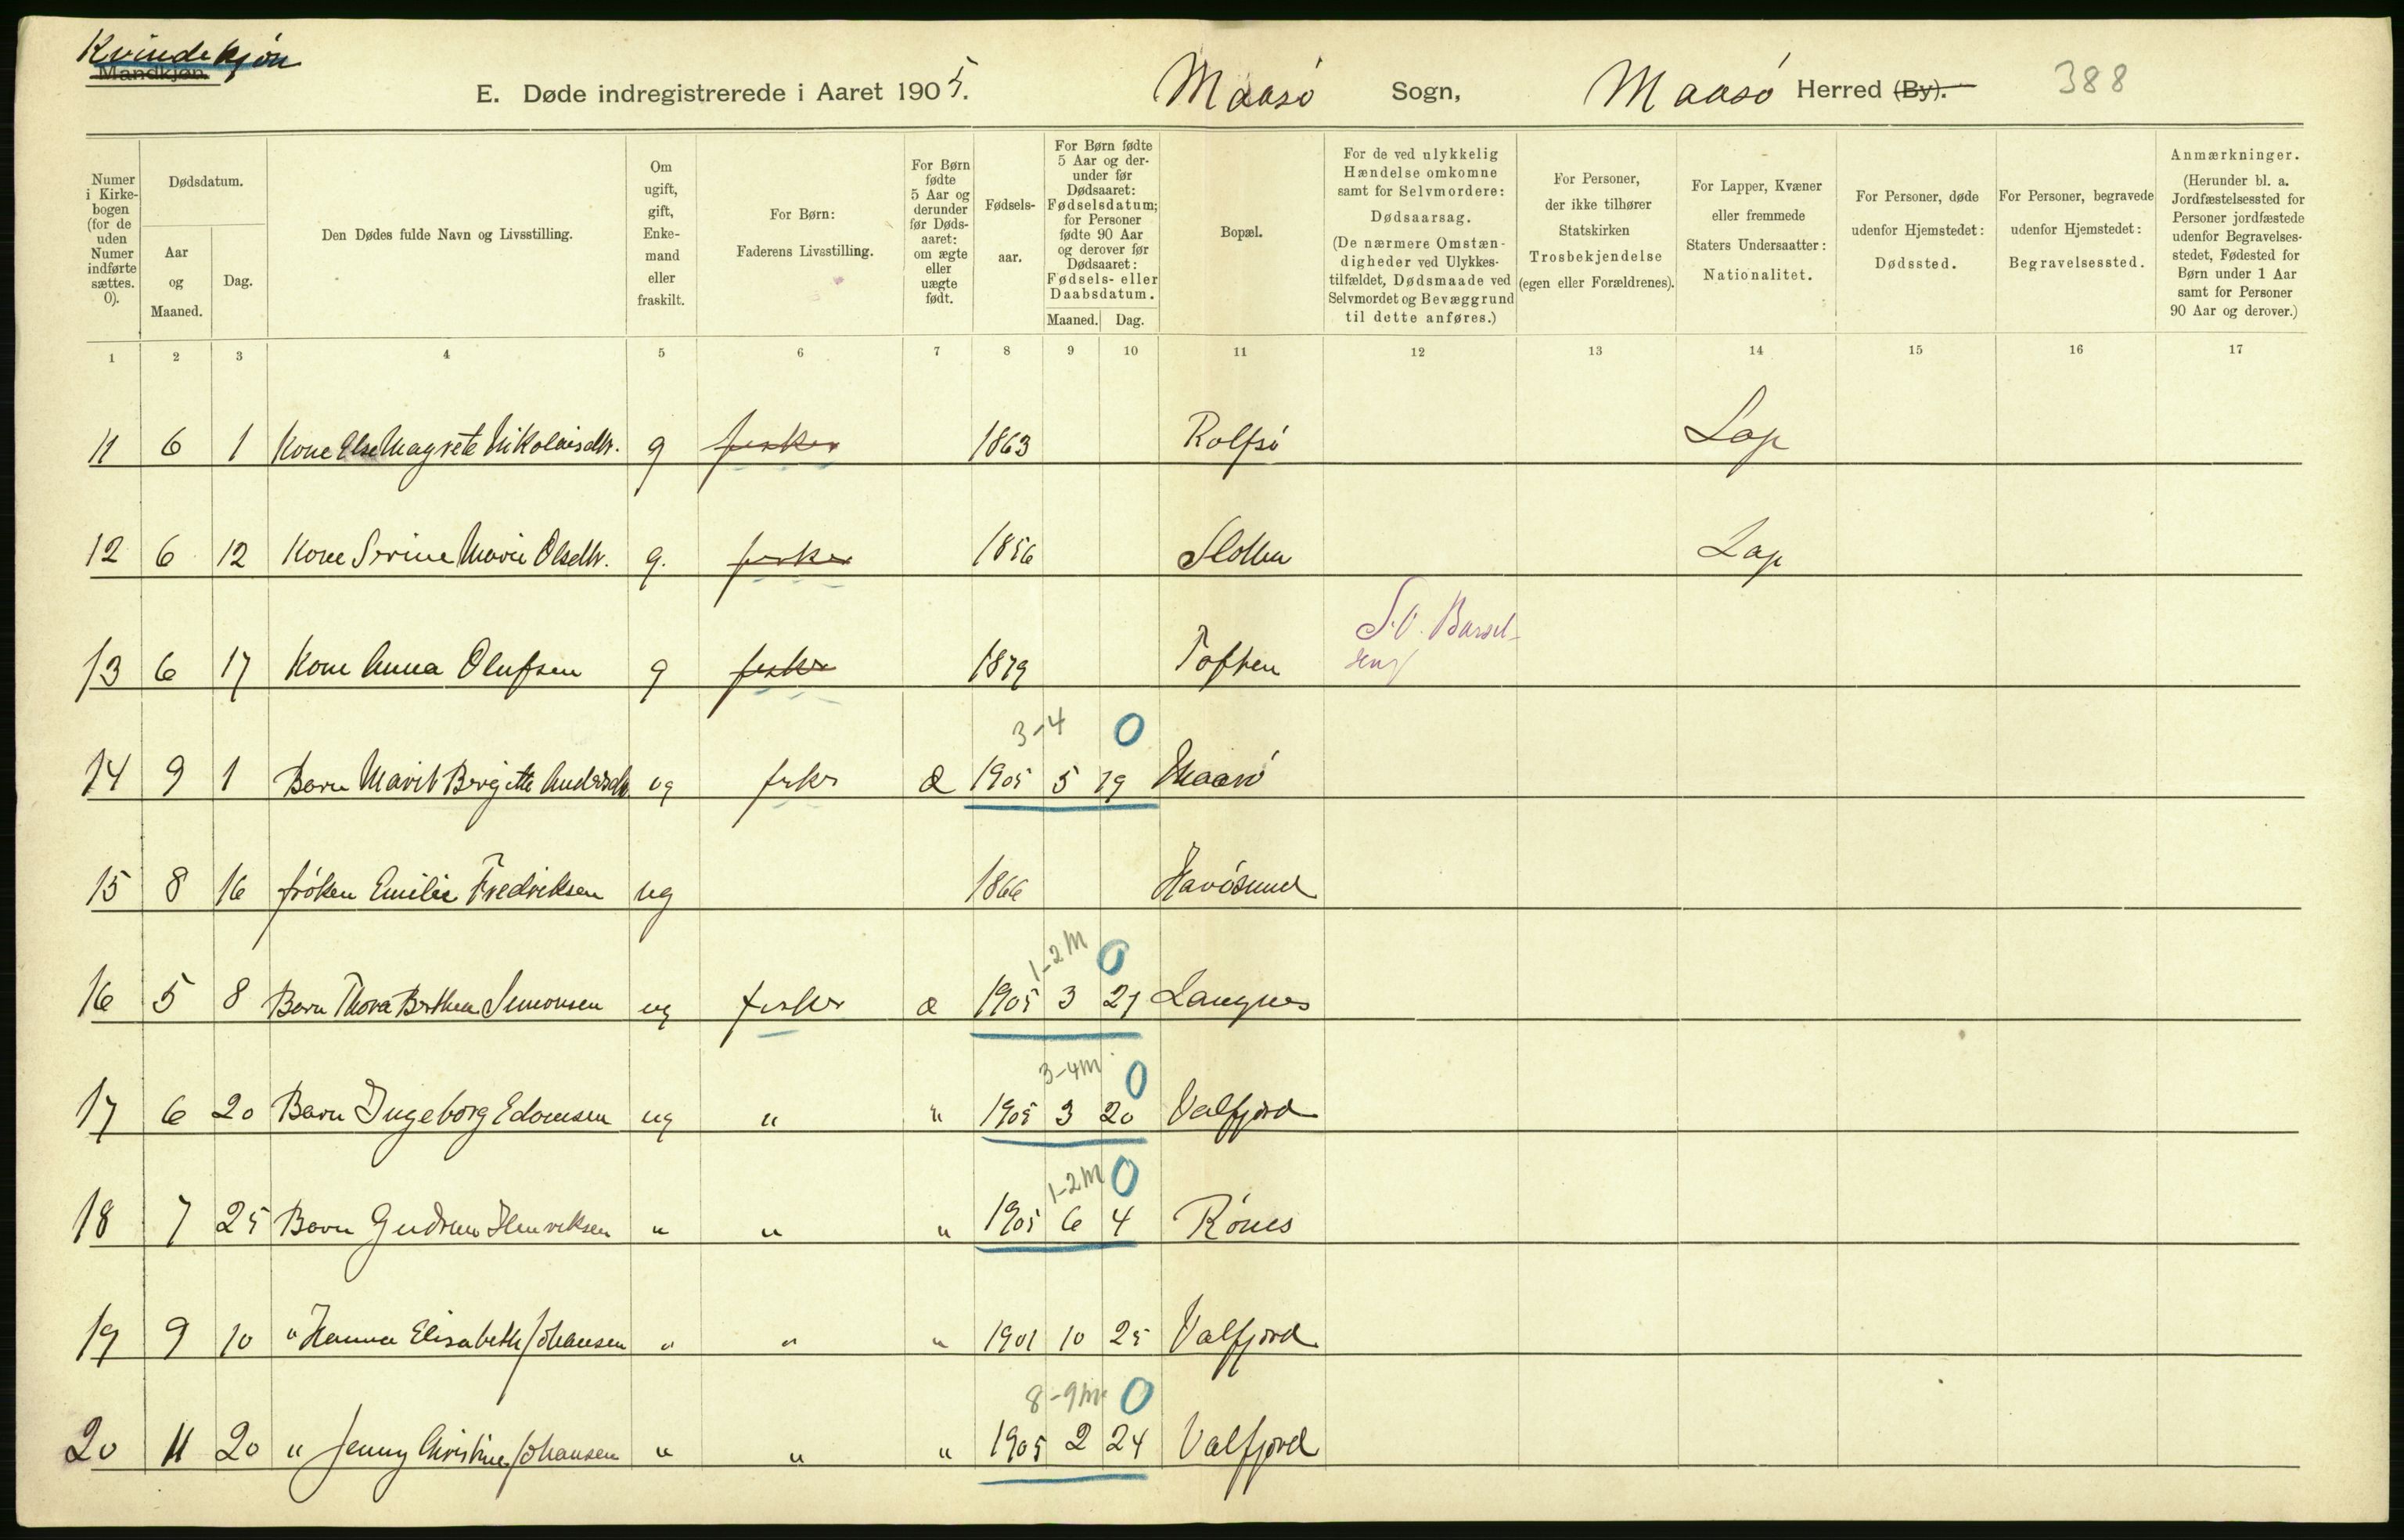 Kvindekjøn
Mandkjøn.
E. Døde indregistrerede i Aaret 1905. Maasø Sogn, Maasø Herred (By). 388
Numer i Kirke-bogen (for de uden Numer indførte sættes. 0).
Dødsdatum.
Aar og Maaned.
Dag.
Den Dødes fulde Navn og Livsstilling.
Om ugift, gift, Enke-mand eller fraskilt.
For Børn: Faderens Livsstilling.
For Børn fødte 5 Aar og derunder før Døds-aaret: om ægte eller uægte født.
Fødsels-aar.
For Børn fødte 5 Aar og der-under før Dødsaaret: Fødselsdatum; for Personer fødte 90 Aar og derover før Dødsaaret: Fødsels- eller Daabsdatum.
Maaned. Dag.
Bopæl.
For de ved ulykkelig Hændelse omkomne samt for Selvmordere: Dødsaarsag. (De nærmere Omstæn-digheder ved Ulykkes-tilfældet, Dødsmaade ved Selvmordet og Bevæggrund til dette anføres.)
For Personer, der ikke tilhører Statskirken Trosbekjendelse (egen eller Forældrenes).
For Lapper, Kvæner eller fremmede Staters Undersaatter: Nationalitet.
For Personer, døde udenfor Hjemstedet: Dødssted.
For Personer, begravede udenfor Hjemstedet: Begravelsessted.
Anmærkninger. (Herunder bl. a. Jordfæstelsessted for Personer jordfæstede udenfor Begravelses-stedet, Fødested for Børn under 1 Aar samt for Personer 90 Aar og derover.)
1 2 3 4 5 6 7 8 9 10 11 12 13 14 15 16 17
11 6 1 Kone Else Magrete Nikolaisdtr. g fisker 1863 Rolfsø Lap
12 6 12 Kone Serine Marie Olsdtr. g. fisker 1856 Lap
S.O. Barsel-
13 6 17 Kone Anna Olufsen g fisker 1879 Toften seng
3-4 0
14 9 1 Barn Marit Bergitte Andersdtr ug fisker æ 1905 5 19 Maasø
15 8 16 frøken Emilie Fredriksen ug 1866 Havøsund
1-2 M 0
16 5 8 Barn Thora Berthea Simonsen ug fisker æ 1905 3 21 Langnes
3-4 M 0
17 6 20 Barn Ingeborg Edomsen ug " " 1905 3 20 Valfjord
1-2 M 0
18 7 25 Barn Gudrun Henriksen " " " 1905 6 4 Rønes
19 9 10 " Hanna Elisabeth Johansen " " " 1901 10 25 Valfjord
8-9 M 0
20 11 20 " Jenny Christine Johansen " " " 1905 2 24 Valfjord